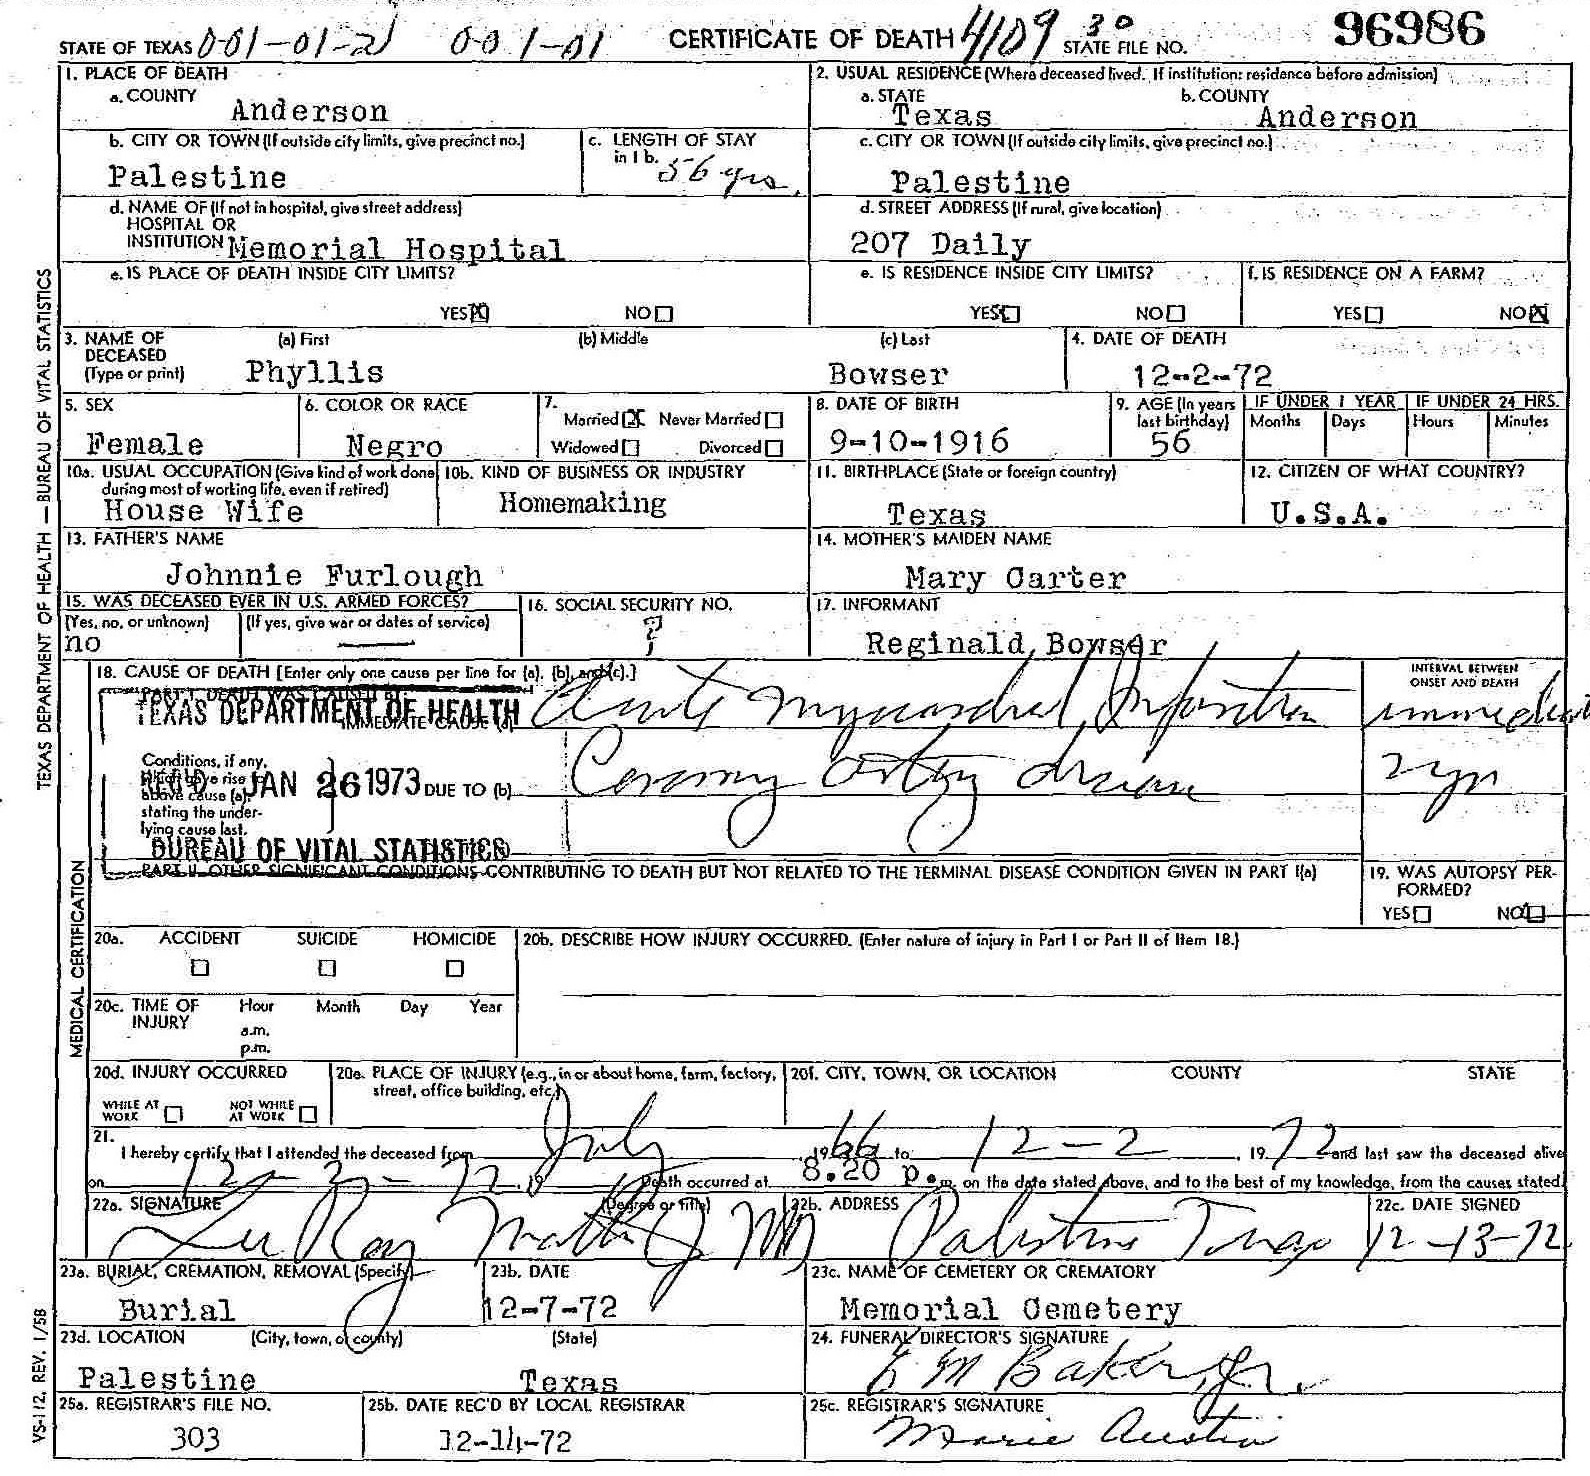 STATE OF TEXAS 001-01-21 001-01 CERTIFICATE OF DEATH 4109 30 STATE FILE NO. 96986
1. PLACE OF DEATH
a. COUNTY
Anderson
2. USUAL RESIDENCE (Where deceased lived. If institution: residence before admission)
a. STATE b. COUNTY
Texas Anderson
b. CITY OR TOWN (If outside city limits, give precinct no.)
Palestine
c. LENGTH OF STAY
in 1 b. 56 yrs.
c. CITY OR TOWN (If outside city limits, give precinct no.)
Palestine
d. NAME OF (If not in hospital, give street address)
HOSPITAL OR
INSTITUTION Memorial Hospital
d. STREET ADDRESS (If rural, give location)
207 Daily
e. IS PLACE OF DEATH INSIDE CITY LIMITS?
YES X NO
e. IS RESIDENCE INSIDE CITY LIMITS?
YES X NO
f. IS RESIDENCE ON A FARM?
YES NO X
3. NAME OF
DECEASED
(Type or print)
(a) First (b) Middle (c) Last
Phyllis Bowser
4. DATE OF DEATH
12-2-72
5. SEX
Female
6. COLOR OR RACE
Negro
7.
Married X Never Married
Widowed Divorced
8. DATE OF BIRTH
9-10-1916
9. AGE (In years
last birthday)
56
IF UNDER 1 YEAR IF UNDER 24 HRS.
Months Days Hours Minutes
10a. USUAL OCCUPATION (Give kind of work done
during most of working life, even if retired)
House Wife
10b. KIND OF BUSINESS OR INDUSTRY
Homemaking
11. BIRTHPLACE (State or foreign country)
Texas
12. CITIZEN OF WHAT COUNTRY?
U.S.A.
13. FATHER'S NAME
Johnnie Furlough
14. MOTHER'S MAIDEN NAME
Mary Carter
15. WAS DECEASED EVER IN U.S. ARMED FORCES?
(Yes, no, or unknown) (If yes, give war or dates of service)
no —
16. SOCIAL SECURITY NO.
?
17. INFORMANT
Reginald Bowser
18. CAUSE OF DEATH [Enter only one cause per line for (a), (b), and (c).]
PART I. DEATH WAS CAUSED BY:
IMMEDIATE CAUSE (a) Acute Myocardial Infarction
INTERVAL BETWEEN
ONSET AND DEATH
immediate
TEXAS DEPARTMENT OF HEALTH
REC'D JAN 26 1973
BUREAU OF VITAL STATISTICS
Conditions, if any,
which gave rise to
above cause (a),
stating the under-
lying cause last.
DUE TO (b) Coronary artery disease 2 yr
PART II. OTHER SIGNIFICANT CONDITIONS CONTRIBUTING TO DEATH BUT NOT RELATED TO THE TERMINAL DISEASE CONDITION GIVEN IN PART I(a)
19. WAS AUTOPSY PER-
FORMED?
YES NO
20a. ACCIDENT SUICIDE HOMICIDE
20b. DESCRIBE HOW INJURY OCCURRED. (Enter nature of injury in Part I or Part II of Item 18.)
20c. TIME OF
INJURY
Hour Month Day Year
a.m.
p.m.
20d. INJURY OCCURRED
WHILE AT
WORK
NOT WHILE
AT WORK
20e. PLACE OF INJURY (e.g., in or about home, farm, factory,
street, office building, etc.)
20f. CITY, TOWN, OR LOCATION COUNTY STATE
21.
I hereby certify that I attended the deceased from July, 1966 to 12-2, 1972 and last saw the deceased alive
on 12-2-72, 19 Death occurred at 8:20 p.m. on the date stated above, and to the best of my knowledge, from the causes stated.
22a. SIGNATURE (Degree or title)
MD
22b. ADDRESS
Palestine Texas
22c. DATE SIGNED
12-13-72
23a. BURIAL, CREMATION, REMOVAL (Specify)
Burial
23b. DATE
12-7-72
23c. NAME OF CEMETERY OR CREMATORY
Memorial Cemetery
23d. LOCATION (City, town, or county) (State)
Palestine Texas
24. FUNERAL DIRECTOR'S SIGNATURE
E M Baker, Jr.
25a. REGISTRAR'S FILE NO.
303
25b. DATE REC'D BY LOCAL REGISTRAR
12-14-72
25c. REGISTRAR'S SIGNATURE
Marie Austin
TEXAS DEPARTMENT OF HEALTH — BUREAU OF VITAL STATISTICS
MEDICAL CERTIFICATION
VS-112, REV. 1/58